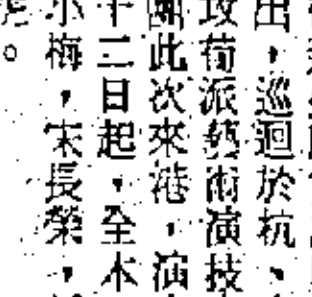 出，巡迴於杭、
攻荀派藝術演技
團此次來港，演
十二日起，全本
小梅，宋長榮，
。